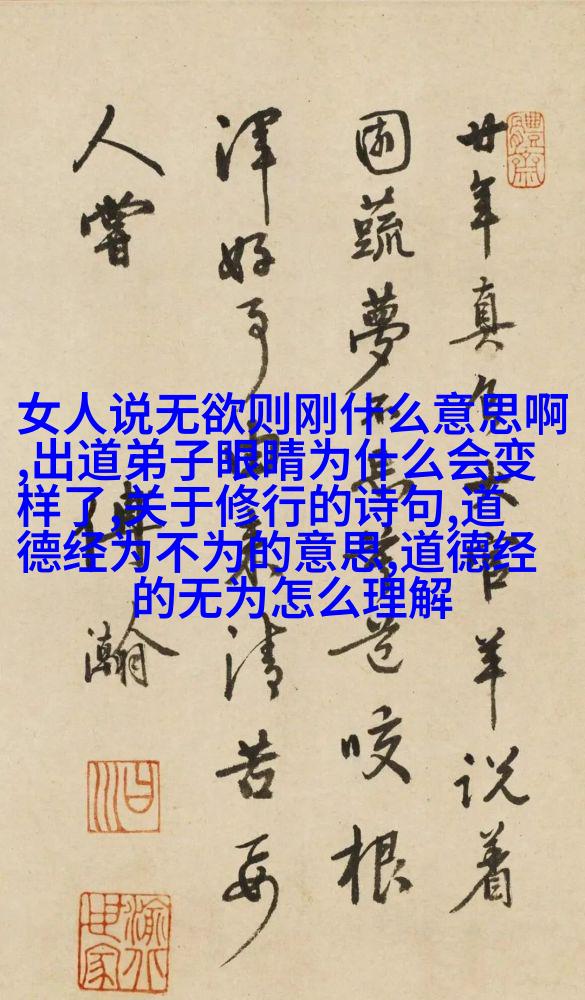 體齋
廿年真負太官羊说着
園蔬夢亦香若道咬根
渾好事由来清苦要
人嘗
傅瀚
女人说无欲则刚什么意思啊
,出道弟子眼睛为什么会变
样了,关于修行的诗句,道
德经为不为的意思,道德经
的无为怎么理解